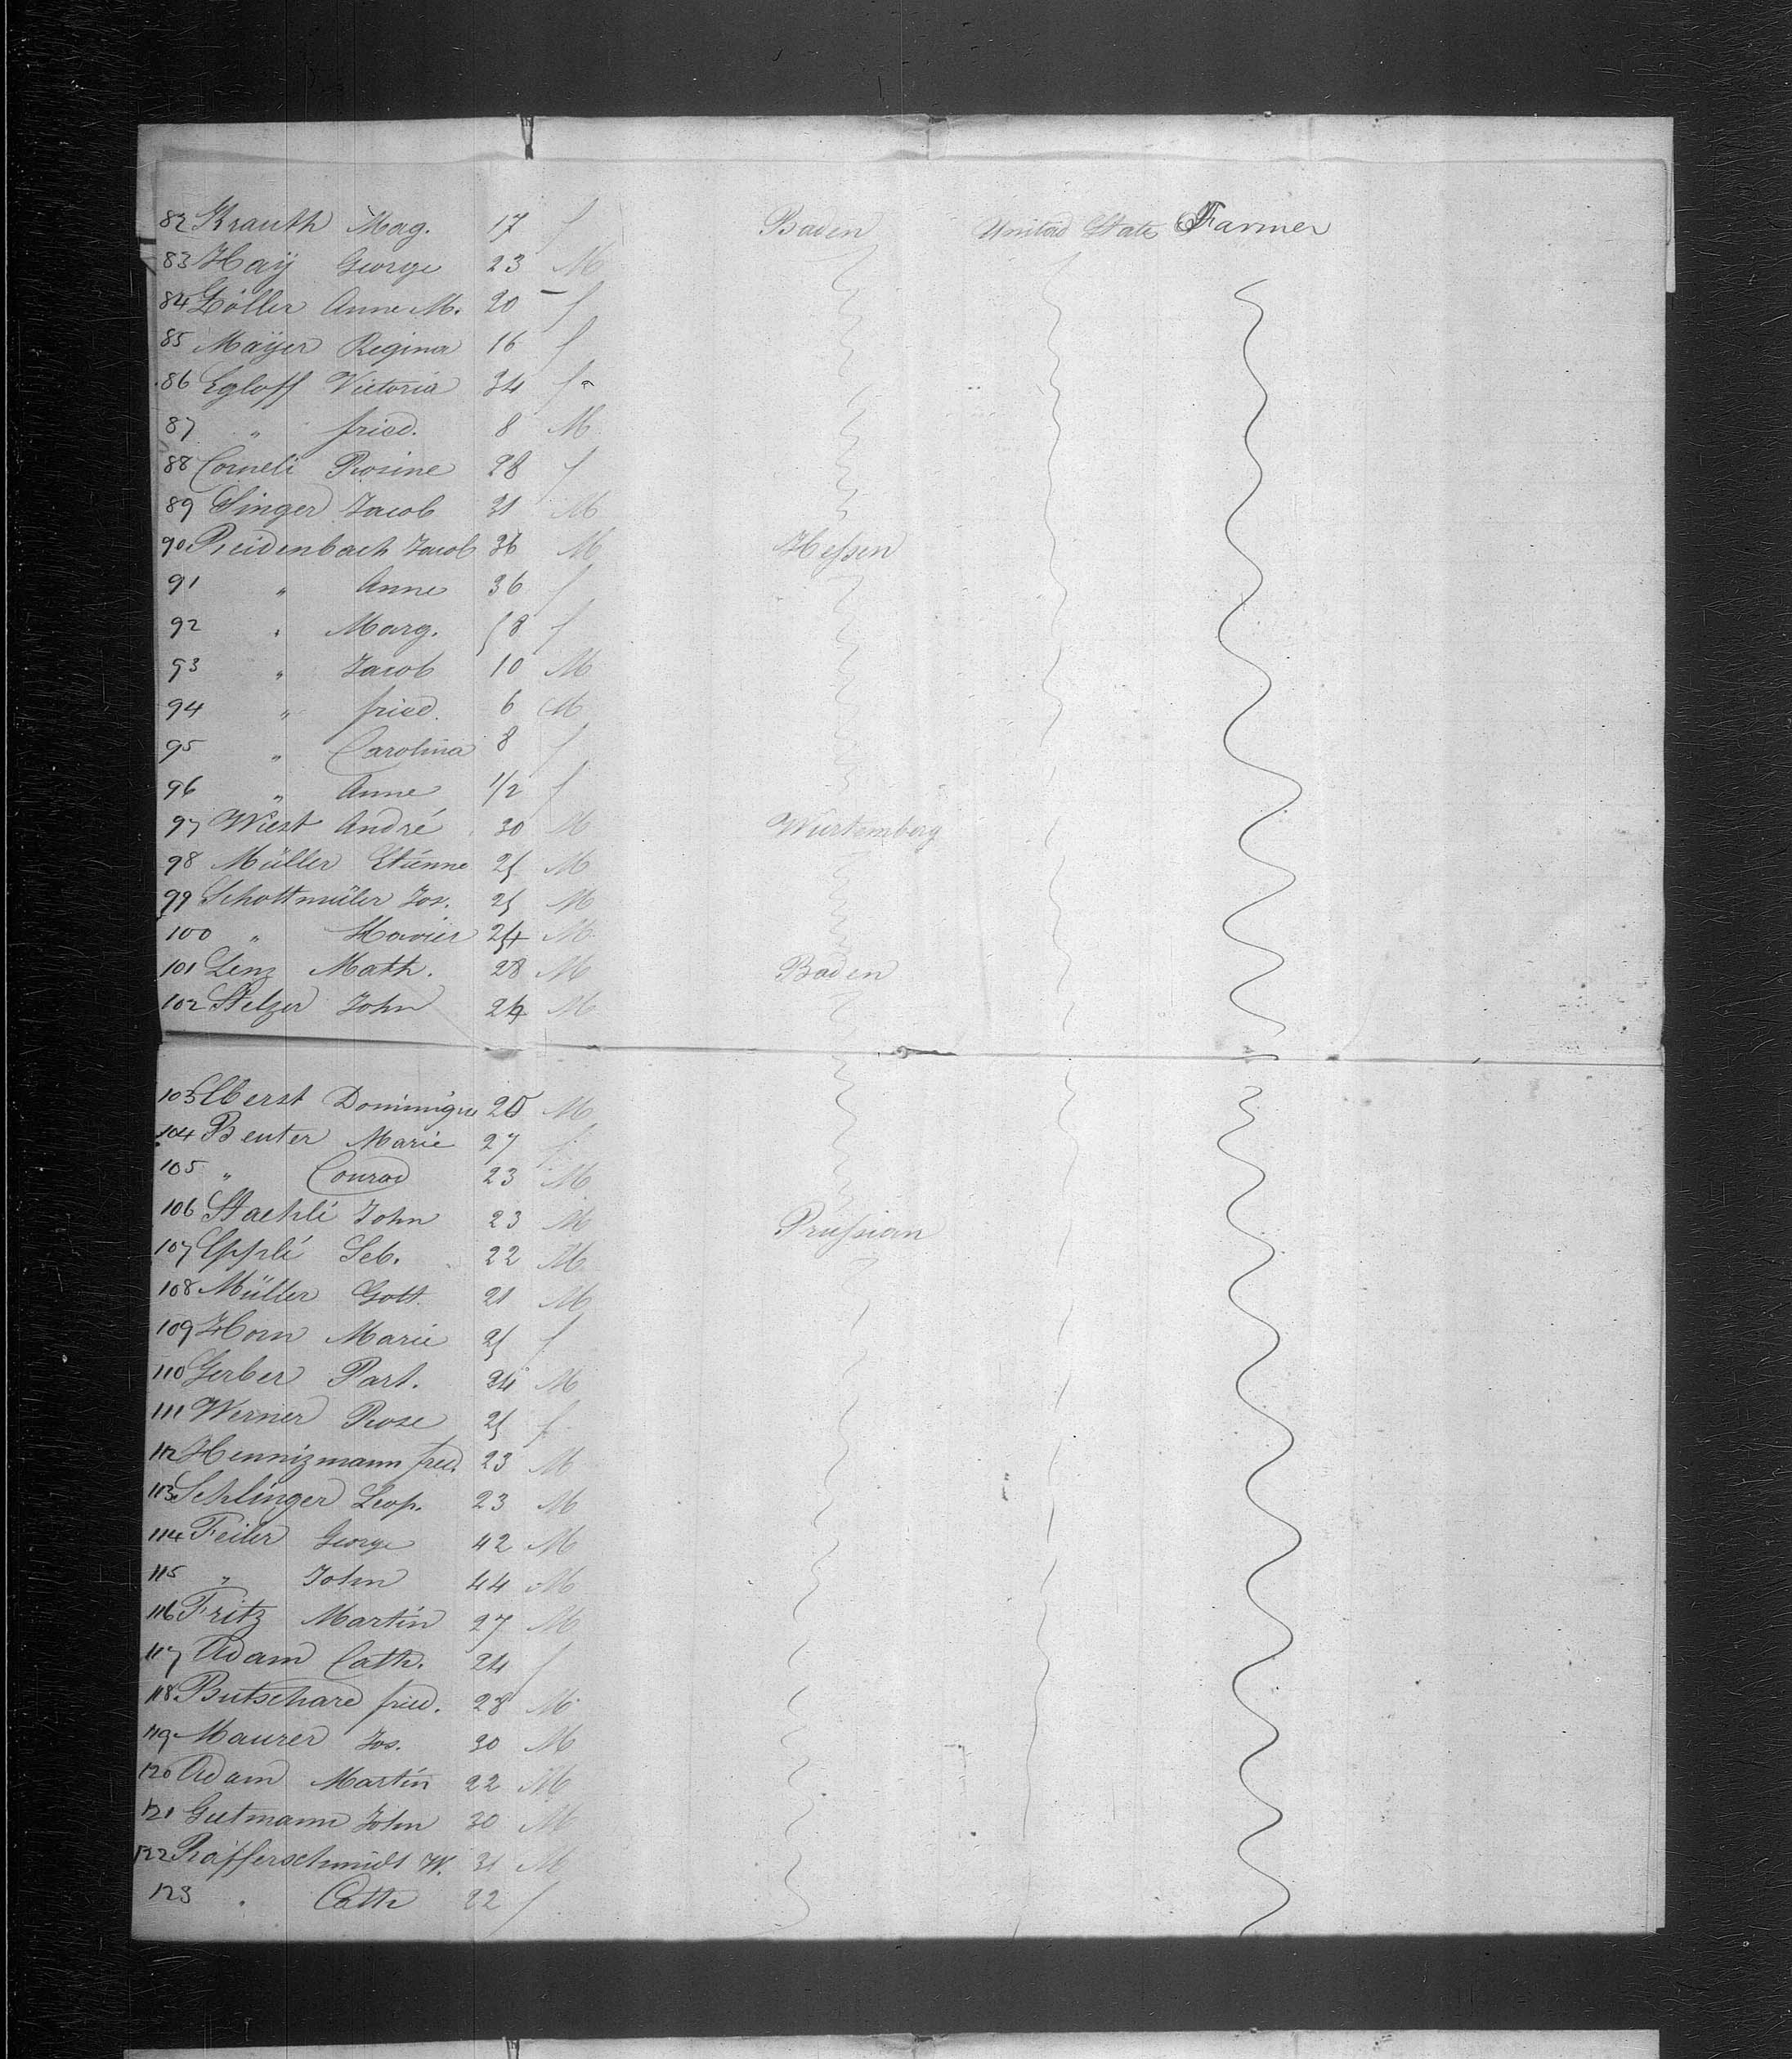 82 Krauth Mag. 17 f Baden United State Farmer
83 Haÿ George 23 M
84 Göller Anne M. 20 f
85 Maÿer Regina 16 f
86 Egloff Victoria 34 f
87 " fried. 8 M
88 Corneli Rosine 28 f
89 Singer Jacob 31 M
90 Reidenbach Jacob 36 M Hessen
91 " Anne 36 f
92 " Marg. 18 f
93 " Jacob 10 M
94 " fried. 6 M
95 " Carolina 8 f
96 " Anne 1/2 f
97 Wiest André 30 M Würtemberg
98 Müller Etienne 25 M
99 Schottmüler Jos. 25 M
100 " Xavier 24 M
101 Lenz Math. 28 M Baden
102 Stelzer John 24 M
103 Eberst Dominique 20 M
104 Beuter Marie 27 f
105 " Conrad 23 M
106 Staehli John 23 M Prussian
107 Epplé Seb. 22 M
108 Müller Gott. 21 M
109 Horn Marie 25 f
110 Gerber Part. 34 M
111 Werner Rose 25 f
112 Hennizmann fried. 23 M
113 Schlinger Leop. 23 M
114 Feiler George 42 M
115 " John 44 M
116 Fritz Martin 27 M
117 Adam Cath. 24 f
118 Butschare fried. 28 M
119 Maurer Jos. 30 M
120 Adam Martin 22 M
121 Gutmann John 30 M
122 Rafferschmidt W. 31 M
123 " Cath 22 f